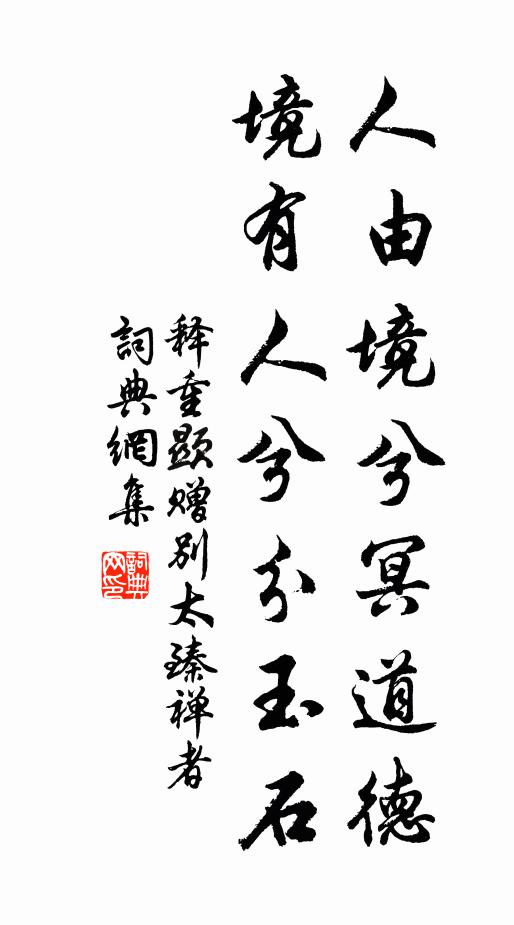 人由境兮冥道德
境有人兮分玉石
释重顯赠别太臻禅者
詞典網集
詞典網印